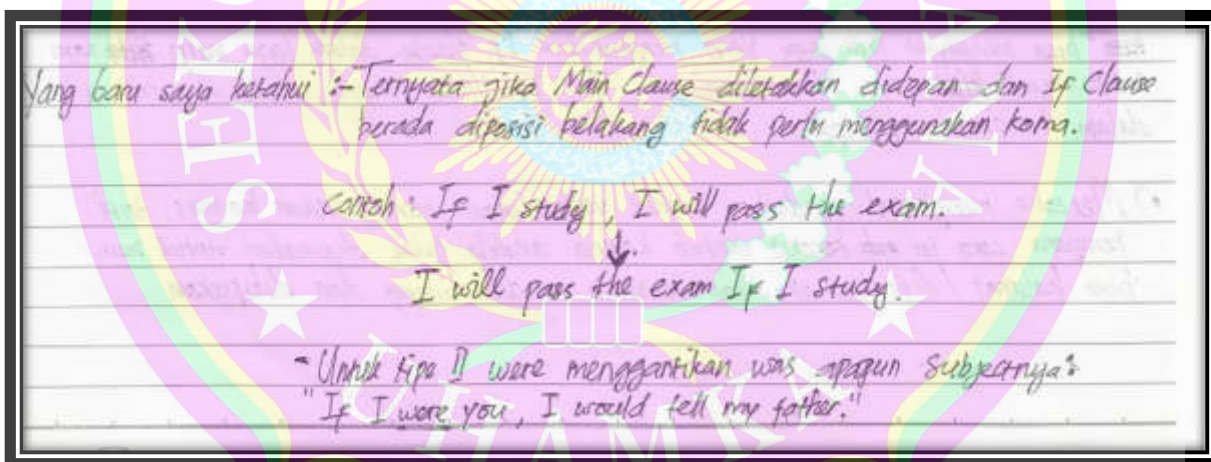 Yang baru saya ketahui :- Ternyata jika Main Clause diletakkan didepan dan If Clause
berada diposisi belakang tidak perlu menggunakan koma.
contoh : If I study, I will pass the exam.
↓
I will pass the exam If I study.
- Untuk tipe II were menggantikan was apapun Subjectnya :
"If I were you, I would tell my father."
SEK
ANA
UHAMKA